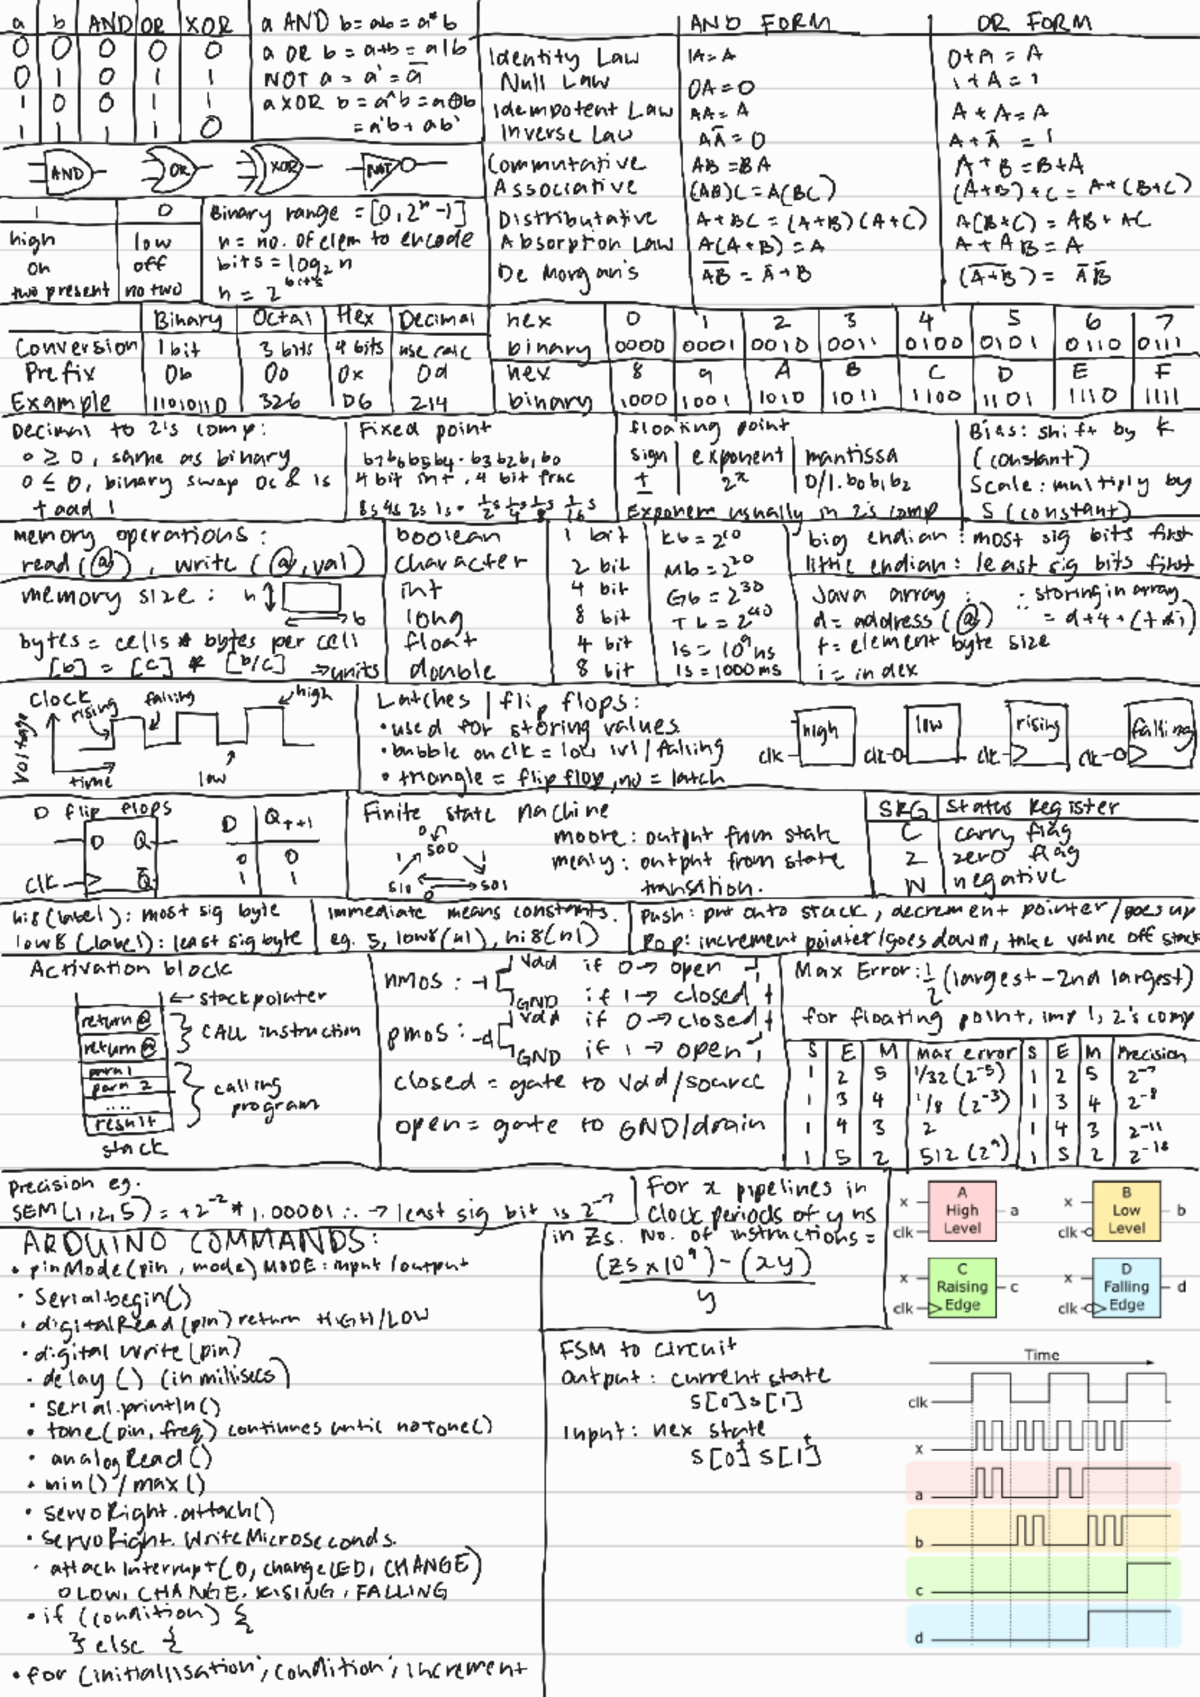 a b AND OR XOR
0 0 0 0 0
0 1 0 1 1
1 0 0 1 1
1 1 1 1 0
a AND b = ab = a*b
a OR b = a+b = a|b
NOT a = a' = a̅
a XOR b = a^b = a⊕b
= a'b + ab'
AND OR XOR NOT
1 0
high low
on off
two present no two
Binary range = [0, 2ⁿ-1]
n = no. of elem to encode
bits = log₂ n
n = 2^bits
AND FORM OR FORM
Identity Law 1A = A 0+A = A
Null Law 0A = 0 1+A = 1
Idempotent Law AA = A A+A = A
Inverse Law AA̅ = 0 A+A̅ = 1
Commutative AB = BA A+B = B+A
Associative (AB)C = A(BC) (A+B)+C = A+(B+C)
Distributative A+BC = (A+B)(A+C) A(B+C) = AB + AC
Absorption Law A(A+B) = A A + AB = A
De Morgan's A̅B̅ = A̅+B̅ (A+B)̅ = A̅B̅
Binary Octal Hex Decimal
Conversion 1 bit 3 bits 4 bits use calc
Prefix 0b 0o 0x 0d
Example 11010110 326 D6 214
hex 0 1 2 3 4 5 6 7
binary 0000 0001 0010 0011 0100 0101 0110 0111
hex 8 9 A B C D E F
binary 1000 1001 1010 1011 1100 1101 1110 1111
Decimal to 2's comp:
0 ≥ 0, same as binary
0 ≤ 0, binary swap 0s & 1s
+ add 1
Fixed point
b7b6b5b4.b3b2b1b0
4 bit int . 4 bit frac
8s 4s 2s 1s . ½s ¼s ⅛s 1/16s
floating point
sign | exponent | mantissa
± 2ˣ 0/1.b0b1b2
Exponent usually in 2's comp
Bias: shift by K
(constant)
Scale: multiply by
S (constant)
memory operations:
read(@), write(@,val)
memory size: n b
bytes = cells * bytes per cell
[b] = [c] * [b/c] → units
boolean 1 bit
character 2 bit
int 4 bit
long 8 bit
float 4 bit
double 8 bit
Kb = 2¹⁰
Mb = 2²⁰
Gb = 2³⁰
Tb = 2⁴⁰
1s = 10⁹ns
1s = 1000ms
big endian: most sig bits first
little endian: least sig bits first
Java array : ∴ storing in array
d = address(@) = d+4+(t*i)
t = element byte size
i = index
Clock rising falling high
Voltage
time low
Latches | flip flops:
• used for storing values
• bubble on clk = low lvl/falling
• triangle = flip flop, no = latch
high low rising falling
clk clk clk clk
D flip flops
D Q
clk Q̅
D Qt+1
0 0
1 1
Finite state machine
S00
S10 S01
moore: output from state
mealy: output from state
transition.
SRG Status Register
C carry flag
Z zero flag
N negative
hi8(label): most sig byte
low8(label): least sig byte
immediate means constants.
eg. 5, low8(n1), hi8(n1)
Push: put onto stack, decrement pointer/goes up
Pop: increment pointer/goes down, take value off stack
Activation block
← stack pointer
return@
return@
CALL instruction
parm 1
parm 2
....
result
calling
program
stack
nmos: Vdd if 0 → open
GND if 1 → closed
pmos: Vdd if 0 → closed
GND if 1 → open
closed = gate to Vdd/source
open = gate to GND/drain
Max Error: ½(largest - 2nd largest)
for floating point, imp 1, 2's comp
S E M max error S E M Precision
1 2 5 1/32 (2⁻⁵) 1 2 5 2⁻⁷
1 3 4 1/8 (2⁻³) 1 3 4 2⁻⁸
1 4 3 2 1 4 3 2⁻¹¹
1 5 2 512 (2⁹) 1 5 2 2⁻¹⁸
Precision eg.
SEM(1,2,5) = +2⁻² * 1.00001 ∴ → least sig bit is 2⁻⁷
For x pipelines in
clock periods of y ns
in Zs. No. of instructions =
(Zs x 10⁹) - (xy)
y
ARDUINO COMMANDS:
• pinMode(pin, mode) MODE: input/output
• Serial.begin()
• digitalRead(pin) return HIGH/LOW
• digital Write(pin)
• delay() (in millisecs)
• serial.println()
• tone(pin, freq) continues until noTone()
• analogRead()
• min()/max()
• servoRight.attach()
• servoRight.WriteMicroseconds.
• attachInterrupt(0, changeLED, CHANGE)
o LOW, CHANGE, RISING, FALLING
• if (condition) {
} else {
• for (initiallisation; condition; increment
FSM to circuit
Output: current state
S[0] S[1]
Input: nex state
S[0]⁺ S[1]⁺
x A High Level a
clk
x B Low Level b
clk
x C Raising Edge c
clk
x D Falling Edge d
clk
Time
clk
x
a
b
c
d